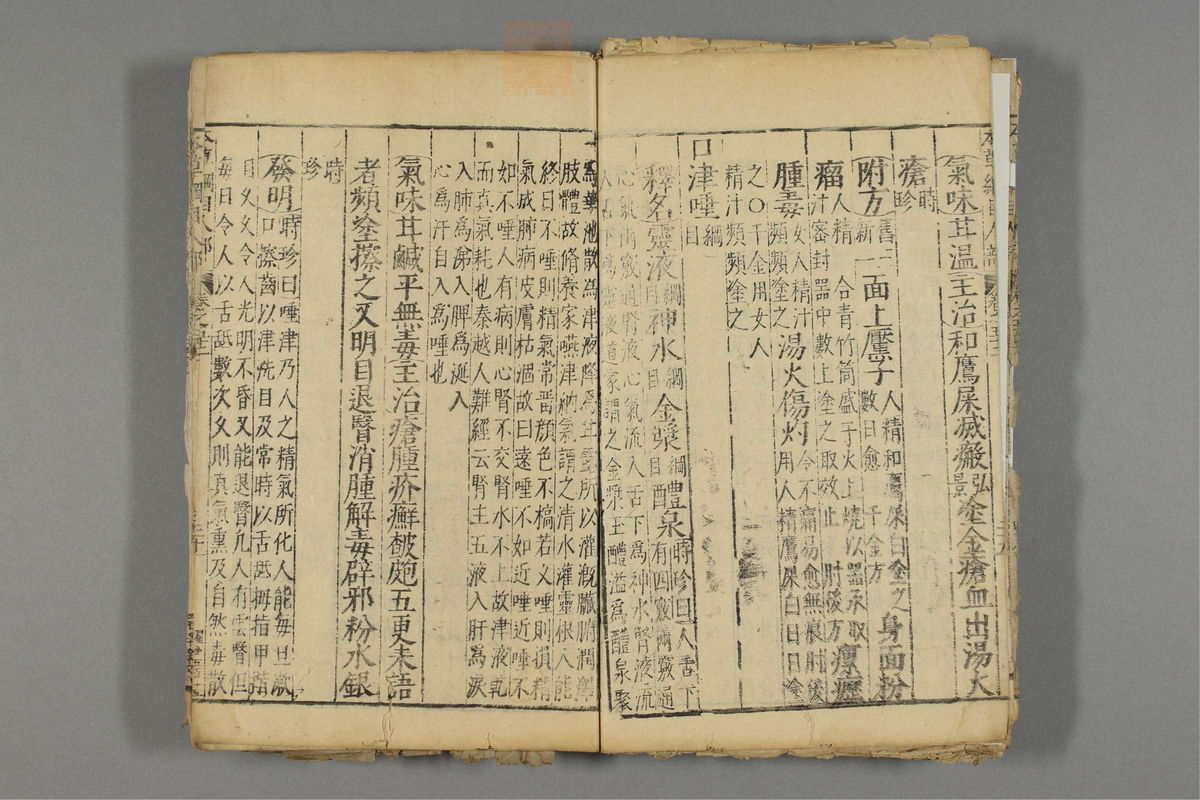 氣味甘温主治和鷹屎滅瘢弘景塗金瘡血出湯火
瘡時珍
附方舊三新一面上黶子人精和鷹屎白塗之數日愈千金方身面粉
瘤人精一合青竹筒盛于火上燒以器承取汁密封器中數數塗之取效止肘後方瘭癧
腫毒女人精汁頻頻塗之湯火傷灼令不痛易愈無痕肘後用人精鷹屎白日日塗
之〇千金用女人
精汁頻頻塗之
口津唾綱目
釋名靈液綱目神水綱目金漿綱目醴泉時珍曰人舌下有四竅兩竅通
心氣兩竅通腎液心氣流入舌下爲神水腎液流
入舌下爲靈液道家謂之金漿玉醴溢爲醴泉聚
爲華池散爲津液降爲甘露所以灌漑臟腑潤澤
肢體故修養家嚥津納氣謂之清水灌靈根人能
終日不唾則精氣常留顔色不槁若久唾則損精
氣成肺病皮膚枯涸故曰遠唾不如近唾近唾不
如不唾人有病則心腎不交腎水不上故津液乾
而真氣耗也秦越人難經云腎主五液入肝爲淚
入肺爲涕入脾爲涎入
心爲汗自入爲唾也
氣味甘鹹平無毒主治瘡腫疥癬皶皰五更未語
者頻塗擦之又明目退翳消腫解毒辟邪粉水銀
時珍
發明時珍曰唾津乃人之精氣所化人能每旦漱
口擦齒以津洗目及常時以舌舐拇指甲揩
目久久令人光明不昏又能退翳凡人有雲翳但
每日令人以舌舐數次久則真氣熏及自然毒散
本草綱目人部